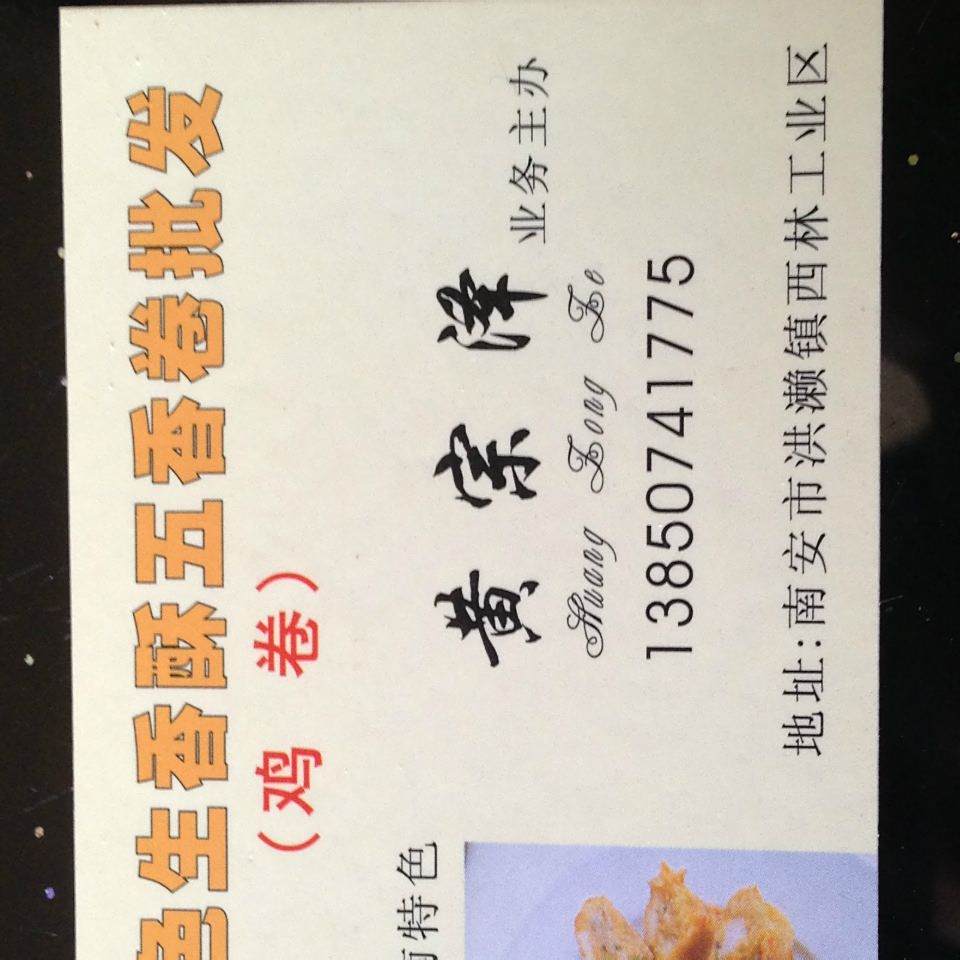 色生香酥五香卷批发
（鸡 卷）
特色
黄宗泽 业务主办
Huang Zong Ze
13850741775
地址:南安市洪濑镇西林工业区